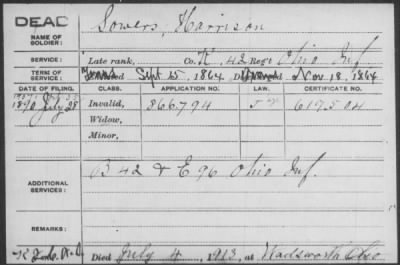 DEAD
NAME OF SOLDIER: Sowers, Harrison
SERVICE: Late rank, Co. K, 42 Reg't Ohio Inf.
TERM OF SERVICE: Sept 25, 1864 Nov 18, 1864
DATE OF FILING. CLASS. APPLICATION NO. LAW. CERTIFICATE NO.
1890 July 28 Invalid, 866.794 619.504
Widow,
Minor,
ADDITIONAL SERVICES: B 42 & E 96 Ohio Inf.
REMARKS:
Died July 4, 1913, at Wadsworth Ohio